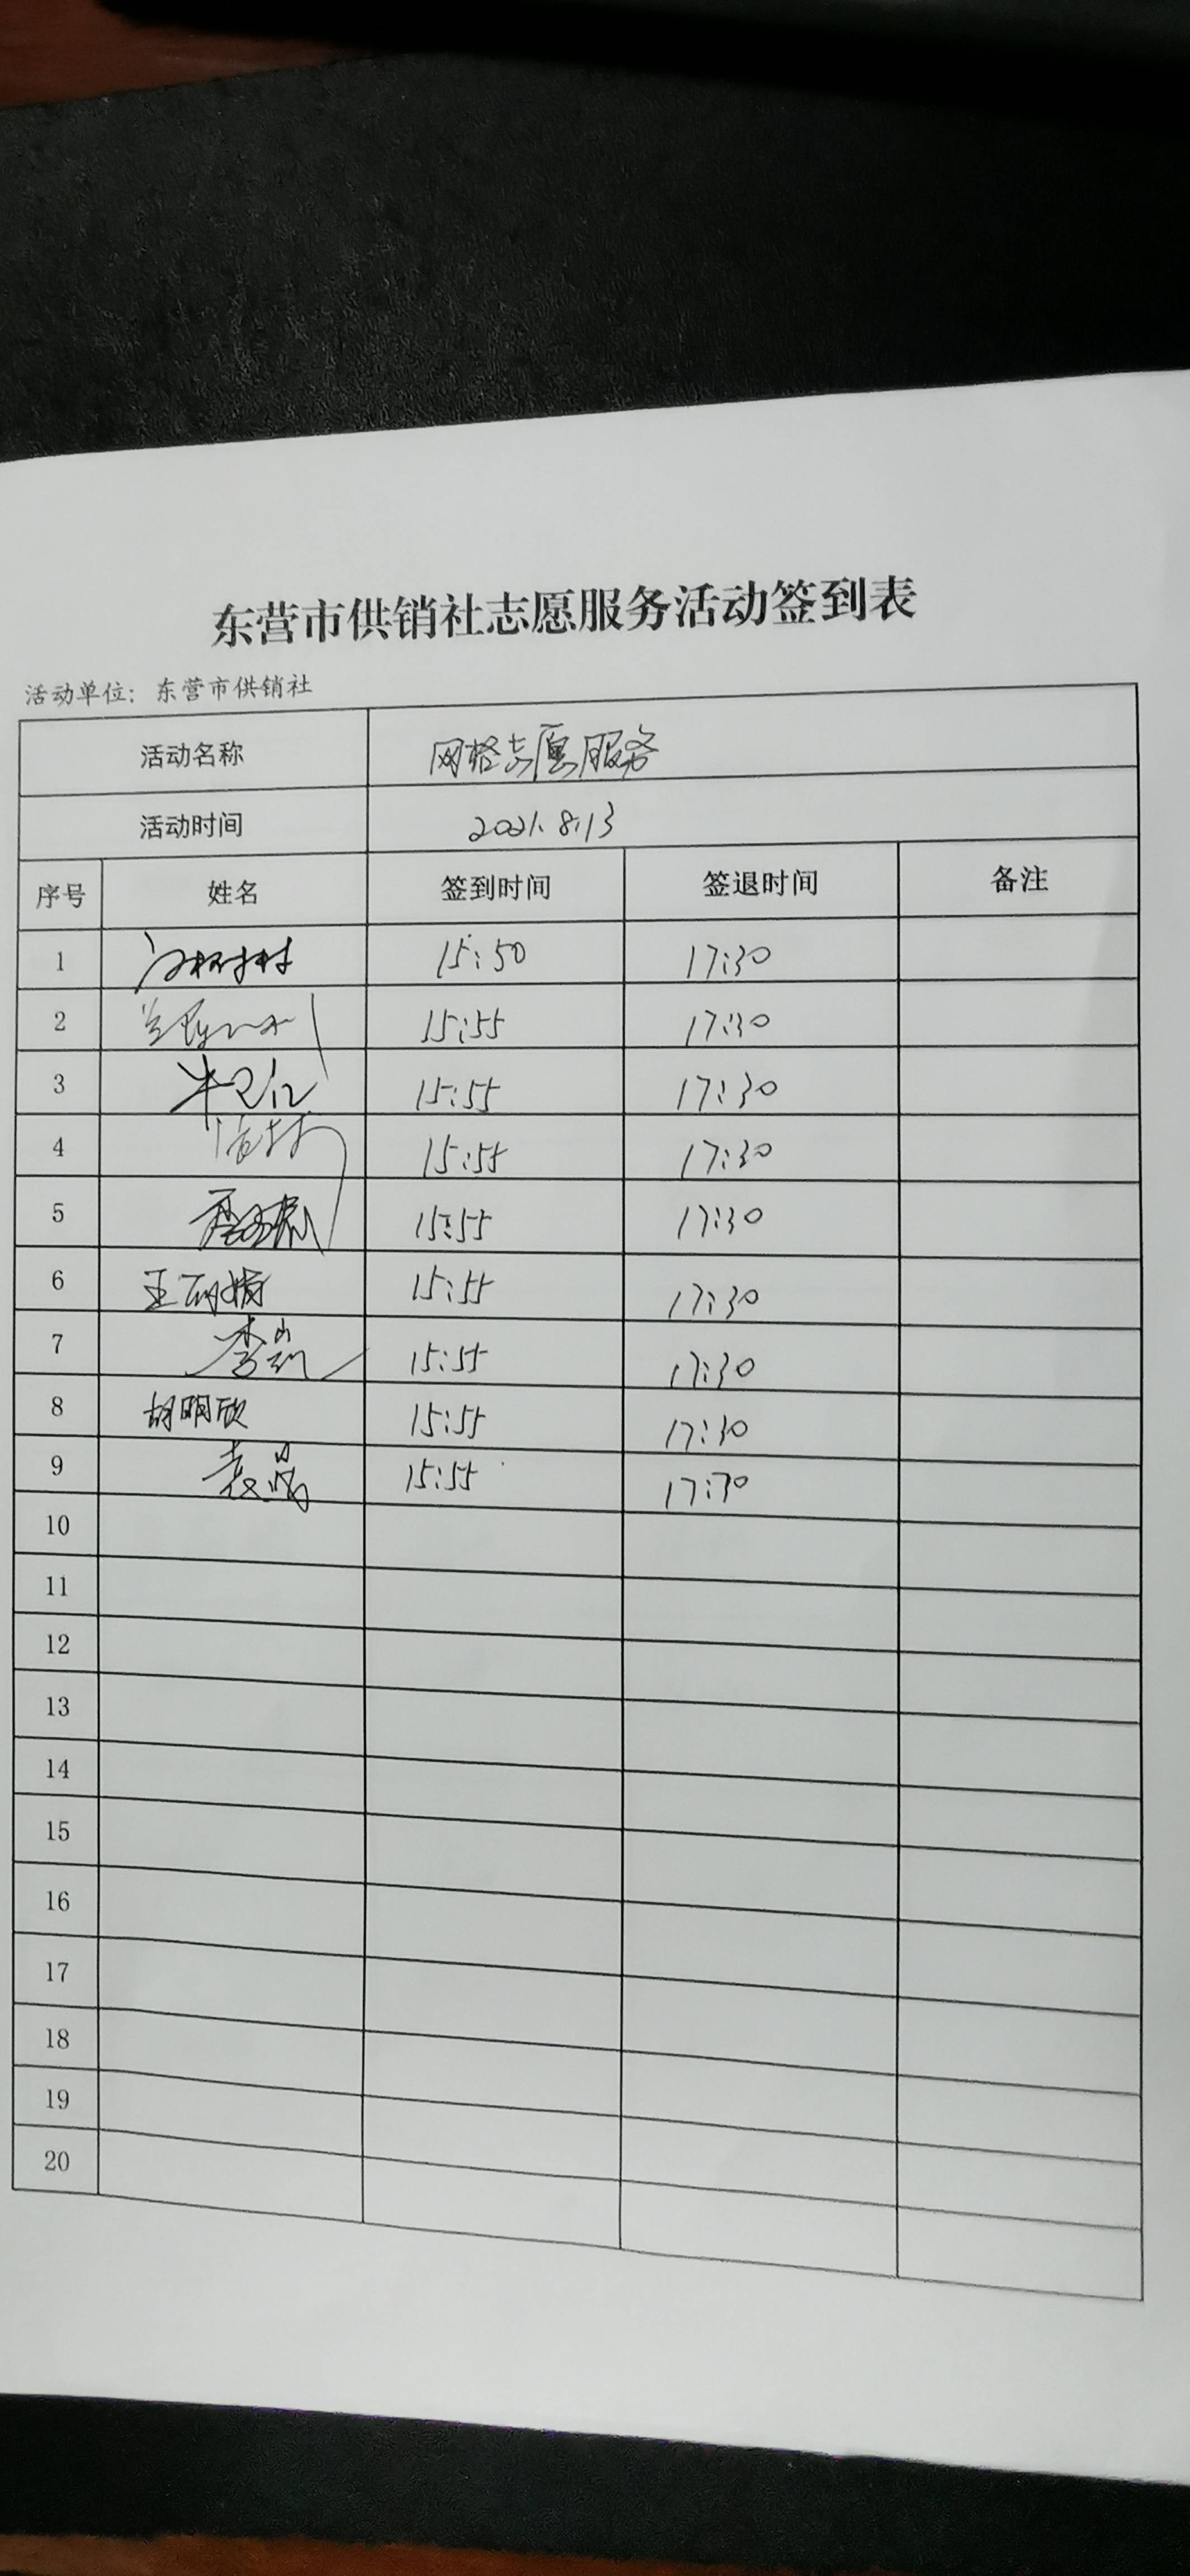 东营市供销社志愿服务活动签到表
活动单位：东营市供销社
活动名称 网格志愿服务
活动时间 2021.8.13
序号 姓名 签到时间 签退时间 备注
1 15:50 17:30
2 15:55 17:30
3 15:55 17:30
4 15:55 17:30
5 15:55 17:30
6 15:55 17:30
7 李凯 15:55 17:30
8 胡明欣 15:55 17:30
9 15:55 17:30
10
11
12
13
14
15
16
17
18
19
20